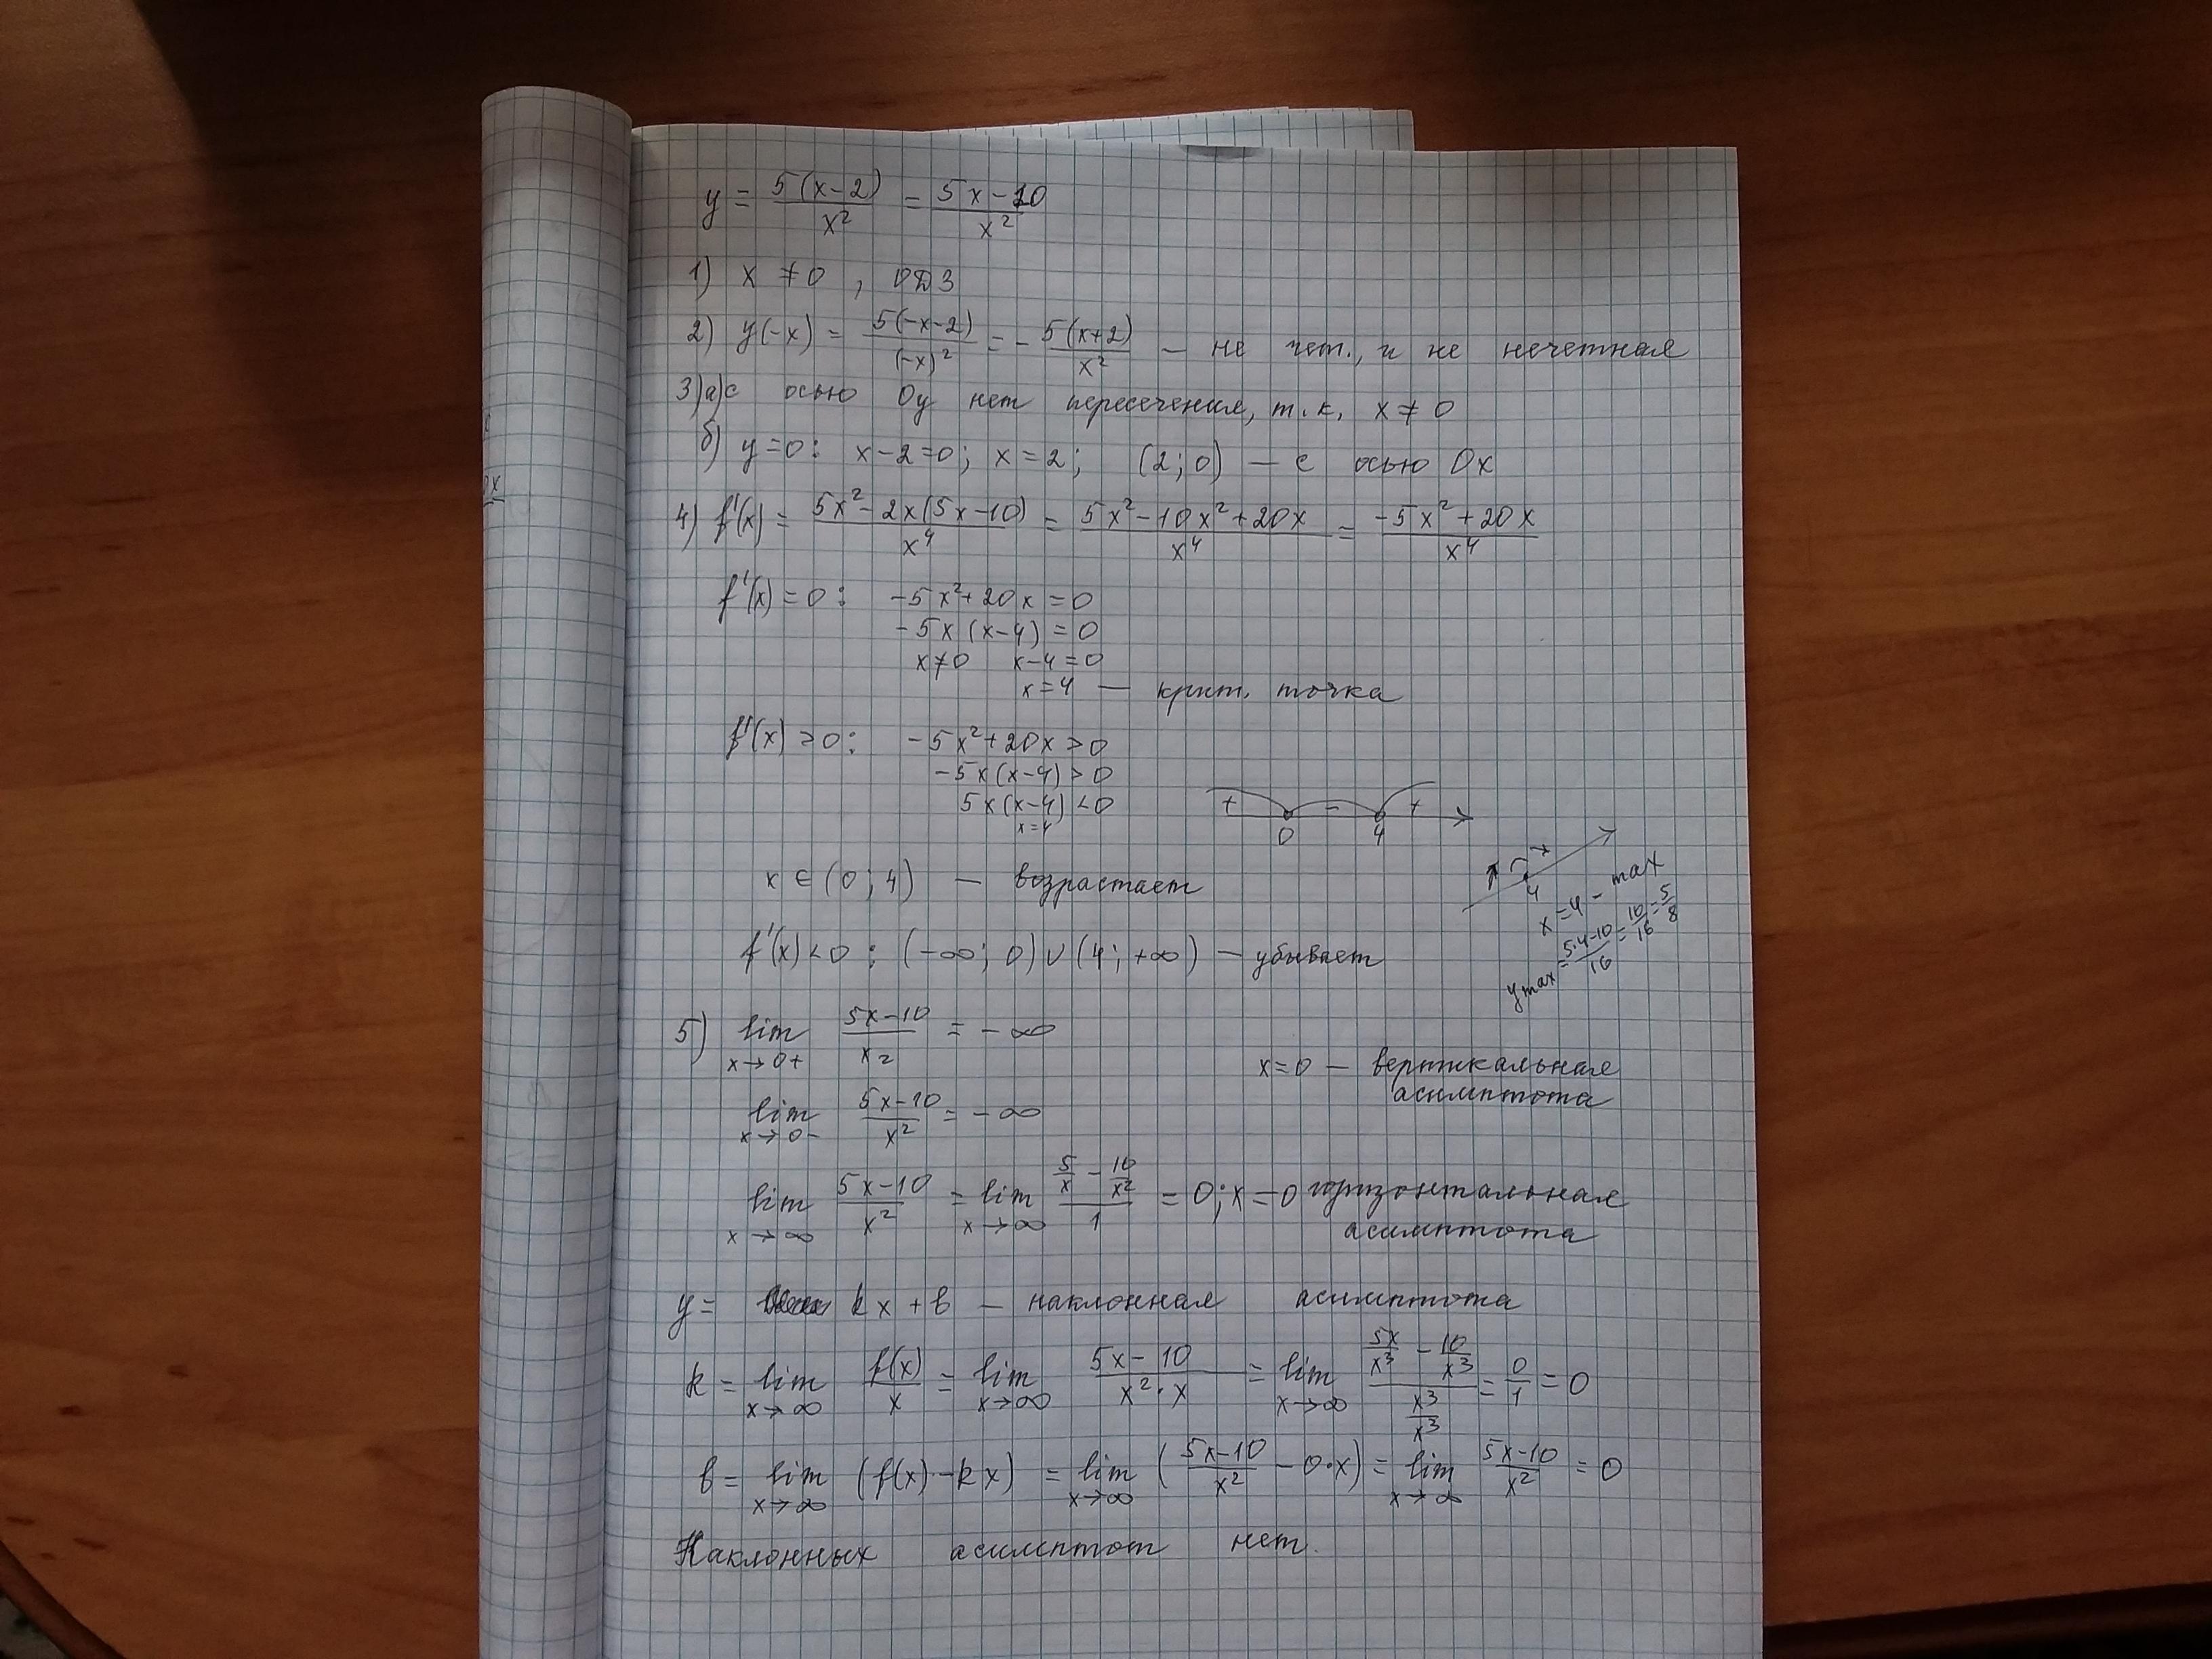 y = 5(x-2)/x² = 5x-10/x²
1) x ≠ 0 , ОДЗ
2) y(-x) = 5(-x-2)/(-x)² = - 5(x+2)/x² — не чет., и не нечетная
3) а) с осью Oy нет пересечения, т.к. x ≠ 0
б) y=0: x-2=0; x=2; (2;0) — с осью Ox
4) f'(x) = 5x²-2x(5x-10)/x⁴ = 5x²-10x²+20x/x⁴ = -5x²+20x/x⁴
f'(x)=0: -5x²+20x=0
-5x(x-4)=0
x≠0 x-4=0
x=4 — крит. точка
f'(x)>0: -5x²+20x>0
-5x(x-4)>0
5x(x-4)<0
x=4
+ - +
0 4
x∈(0;4) — возрастает
4
x=4 - max
ymax = 5·4-10/16 = 10/16 = 5/8
f'(x)<0: (-∞;0)∪(4;+∞) — убывает
5) lim x→0+ 5x-10/x2 = -∞
x=0 — вертикальная
асимптота
lim x→0- 5x-10/x² = -∞
lim x→∞ 5x-10/x² = lim x→∞ 5/x - 10/x²/1 = 0; x=0 горизонтальная
асимптота
y= kx+b — наклонная асимптота
k = lim x→∞ f(x)/x = lim x→∞ 5x-10/x²·x = lim x→∞ 5x/x³ - 10/x³/x³/x³ = 0/1 = 0
b = lim x→∞ (f(x)-kx) = lim x→∞ (5x-10/x² - 0·x) = lim x→∞ 5x-10/x² = 0
Наклонных асимптот нет.